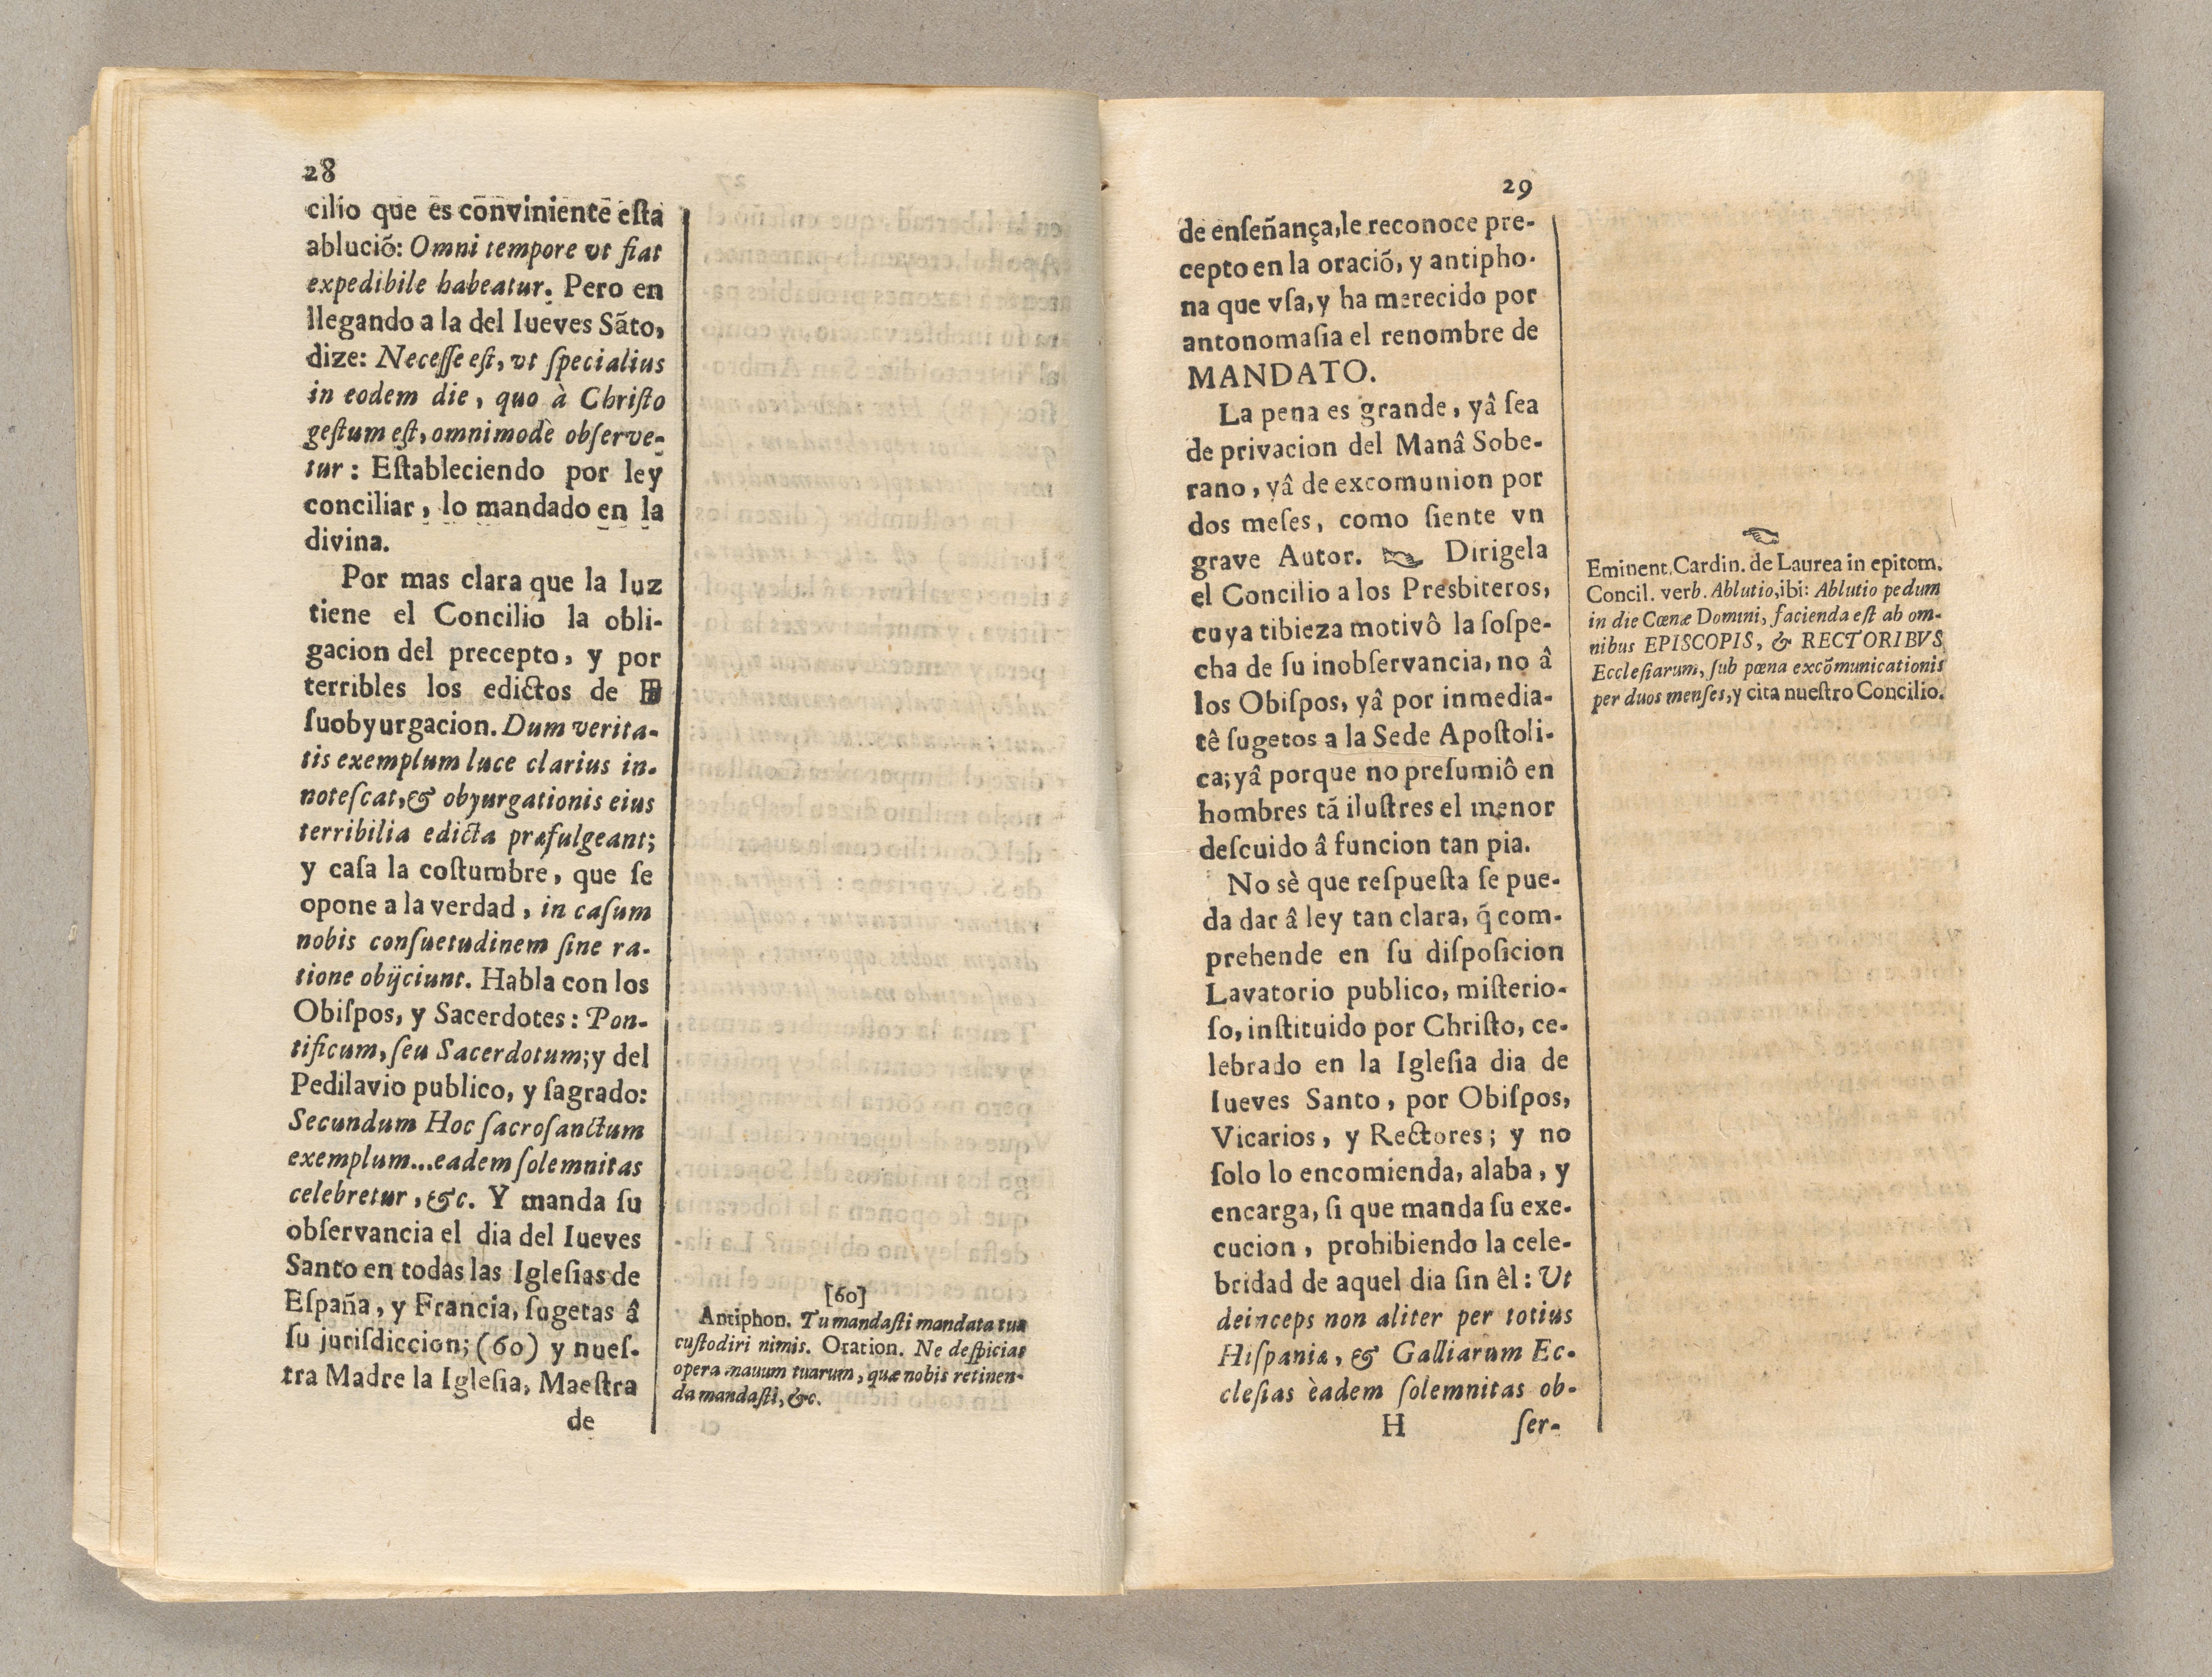 28
cilio que es conviniente eſta
ablució: Omni tempore vt fiat
expedibile habeatur. Pero en
llegando a la del Iueves Sãto,
dize: Neceſſe eſt, vt ſpecialius
in eodem die, quo à Chriſto
geſtum eſt, omnimodè obſerve-
tur: Eſtableciendo por ley
conciliar, lo mandado en la
divina.
Por mas clara que la luz
tiene el Concilio la obli-
gacion del precepto, y por
terribles los edictos de
ſuobyurgacion. Dum verita-
tis exemplum luce clarius in-
noteſcat, & obyurgationis eius
terribilia edicta præfulgeant;
y caſa la coſtumbre, que ſe
opone a la verdad, in caſum
nobis conſuetudinem ſine ra-
tione obijciunt. Habla con los
Obiſpos, y Sacerdotes: Pon-
tificum, ſeu Sacerdotum; y del
Pedilavio publico, y ſagrado:
Secundum Hoc ſacroſanctum
exemplum... eadem ſolemnitas
celebretur, &c. Y manda ſu
obſervancia el dia del Iueves
Santo en todas las Igleſias de
Eſpaña, y Francia, ſugetas â
ſu juriſdiccion; (60) y nueſ-
tra Madre la Igleſia, Maeſtra
de
[60]
Antiphon. Tu mandaſti mandata tua
cuſtodiri nimis. Oration. Ne deſpicias
opera mauum tuarum, quæ nobis retinen-
da mandaſti, &c.
29
de enſeñança, le reconoce pre-
cepto en la oració, y antipho-
na que vſa, y ha merecido por
antonomaſia el renombre de
MANDATO.
La pena es grande, yâ ſea
de privacion del Manâ Sobe-
rano, yâ de excomunion por
dos meſes, como ſiente vn
grave Autor. ☞ Dirigela
el Concilio a los Presbiteros,
cuya tibieza motivô la ſoſpe-
cha de ſu inobſervancia, no â
los Obiſpos, yâ por inmedia-
tê ſugetos a la Sede Apoſtoli-
ca; yâ porque no preſumiô en
hombres tã iluſtres el menor
deſcuido â funcion tan pia.
No sè que reſpueſta ſe pue-
da dar â ley tan clara, q̃ com-
prehende en ſu diſpoſicion
Lavatorio publico, miſterio-
ſo, inſtituido por Chriſto, ce-
lebrado en la Igleſia dia de
Iueves Santo, por Obiſpos,
Vicarios, y Rectores; y no
ſolo lo encomienda, alaba, y
encarga, ſi que manda ſu exe-
cucion, prohibiendo la cele-
bridad de aquel dia ſin êl: Ut
deinceps non aliter per totius
Hiſpaniæ, & Galliarum Ec-
cleſias èadem ſolemnitas ob-
H ſer-
☞
Eminent. Cardin. de Laurea in epitom.
Concil. verb. Ablutio, ibi: Ablutio pedum
in die Cœnæ Domini, facienda eſt ab om-
nibus EPISCOPIS, & RECTORIBVS
Eccleſiarum, ſub pœna excõmunicationis
per duos menſes, y cita nueſtro Concilio.